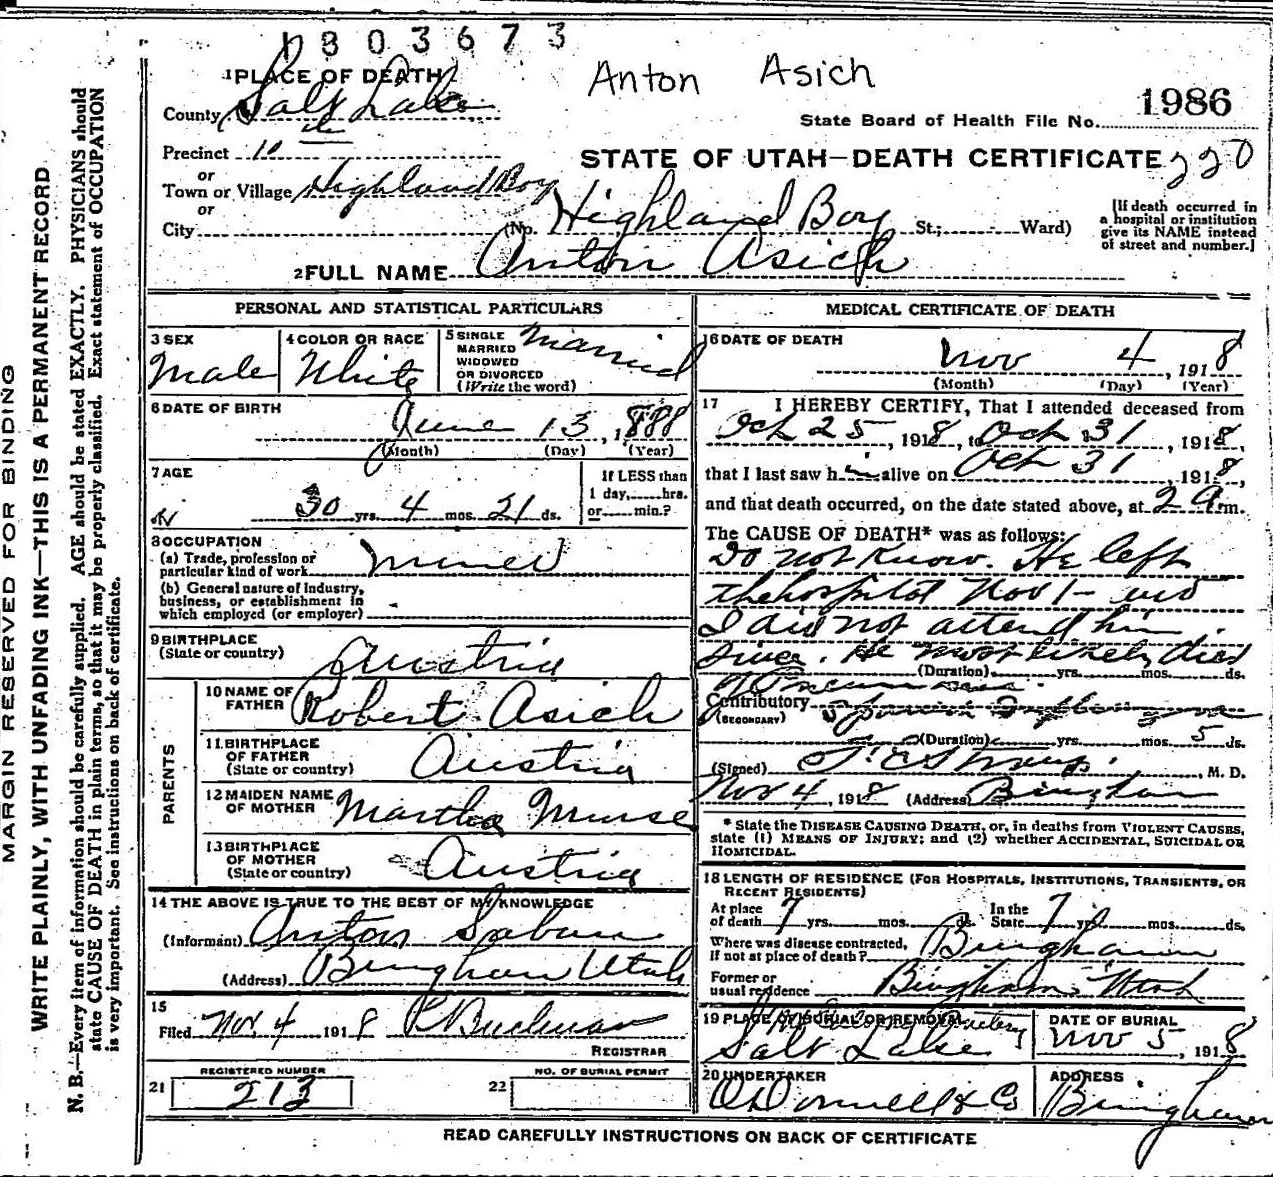 1803673
Anton Asich
1 PLACE OF DEATH
County Salt Lake
State Board of Health File No. 1986
Precinct 10
or
Town or Village Highland Boy
or
City
STATE OF UTAH—DEATH CERTIFICATE 220
(No. Highland Boy St.; Ward)
[If death occurred in a hospital or institution give its NAME instead of street and number.]
2 FULL NAME Anton Asich
PERSONAL AND STATISTICAL PARTICULARS
3 SEX Male
4 COLOR OR RACE White
5 SINGLE MARRIED WIDOWED OR DIVORCED (Write the word) Married
6 DATE OF BIRTH June 13, 1888
(Month) (Day) (Year)
7 AGE 30 yrs. 4 mos. 21 ds.
If LESS than 1 day, hrs. or min.?
8 OCCUPATION
(a) Trade, profession or particular kind of work Miner
(b) General nature of industry, business, or establishment in which employed (or employer)
9 BIRTHPLACE (State or country) Austria
PARENTS
10 NAME OF FATHER Robert Asich
11 BIRTHPLACE OF FATHER (State or country) Austria
12 MAIDEN NAME OF MOTHER Martha
13 BIRTHPLACE OF MOTHER (State or country) Austria
14 THE ABOVE IS TRUE TO THE BEST OF MY KNOWLEDGE
(Informant) Anton
(Address) Bingham Utah
15
Filed Nov. 4 1918 Buchman
REGISTRAR
REGISTERED NUMBER
21 213
NO. OF BURIAL PERMIT
22
MEDICAL CERTIFICATE OF DEATH
16 DATE OF DEATH Nov 4, 1918
(Month) (Day) (Year)
17 I HEREBY CERTIFY, That I attended deceased from
Oct 25, 1918, to Oct 31, 1918,
that I last saw him alive on Oct 31, 1918,
and that death occurred, on the date stated above, at 2 a m.
The CAUSE OF DEATH* was as follows:
Do not know. He left
the hospital Nov 1 - and
I did not attend him
since. He most likely died
(Duration) yrs. mos. ds.
of Pneumonia.
Contributory (SECONDARY) Spanish Influenza
(Duration) yrs. mos. 5 ds.
(Signed) M. D.
Nov 4, 1918 (Address) Bingham
* State the DISEASE CAUSING DEATH, or, in deaths from VIOLENT CAUSES, state (1) MEANS OF INJURY; and (2) whether ACCIDENTAL, SUICIDAL OR HOMICIDAL.
18 LENGTH OF RESIDENCE (FOR HOSPITALS, INSTITUTIONS, TRANSIENTS, OR RECENT RESIDENTS)
At place of death 7 yrs. mos. ds. In the State 7 yrs. mos. ds.
Where was disease contracted, if not at place of death? Bingham
Former or usual residence Bingham Utah
19 PLACE OF BURIAL OR REMOVAL Cemetery
Salt Lake
DATE OF BURIAL
Nov 5, 1918
20 UNDERTAKER
O'Donnell & Co
ADDRESS
Bingham
READ CAREFULLY INSTRUCTIONS ON BACK OF CERTIFICATE
MARGIN RESERVED FOR BINDING
WRITE PLAINLY, WITH UNFADING INK—THIS IS A PERMANENT RECORD
N. B.—Every item of information should be carefully supplied. AGE should be stated EXACTLY. PHYSICIANS should
state CAUSE OF DEATH in plain terms, so that it may be properly classified. Exact statement of OCCUPATION
is very important. See instructions on back of certificate.